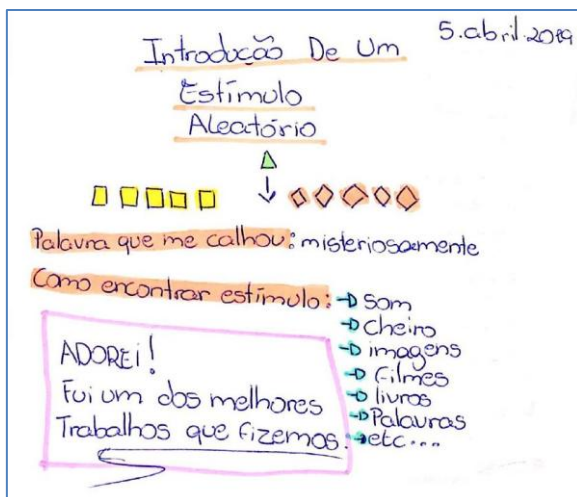 5.abril.2019
Introdução De Um
Estímulo
Aleatório
Palavra que me calhou: misteriosamente
Como encontrar estímulo: → som
→ cheiro
→ imagens
→ filmes
→ livros
→ Palavras
→ etc...
ADOREI!
Foi um dos melhores
Trabalhos que fizemos.